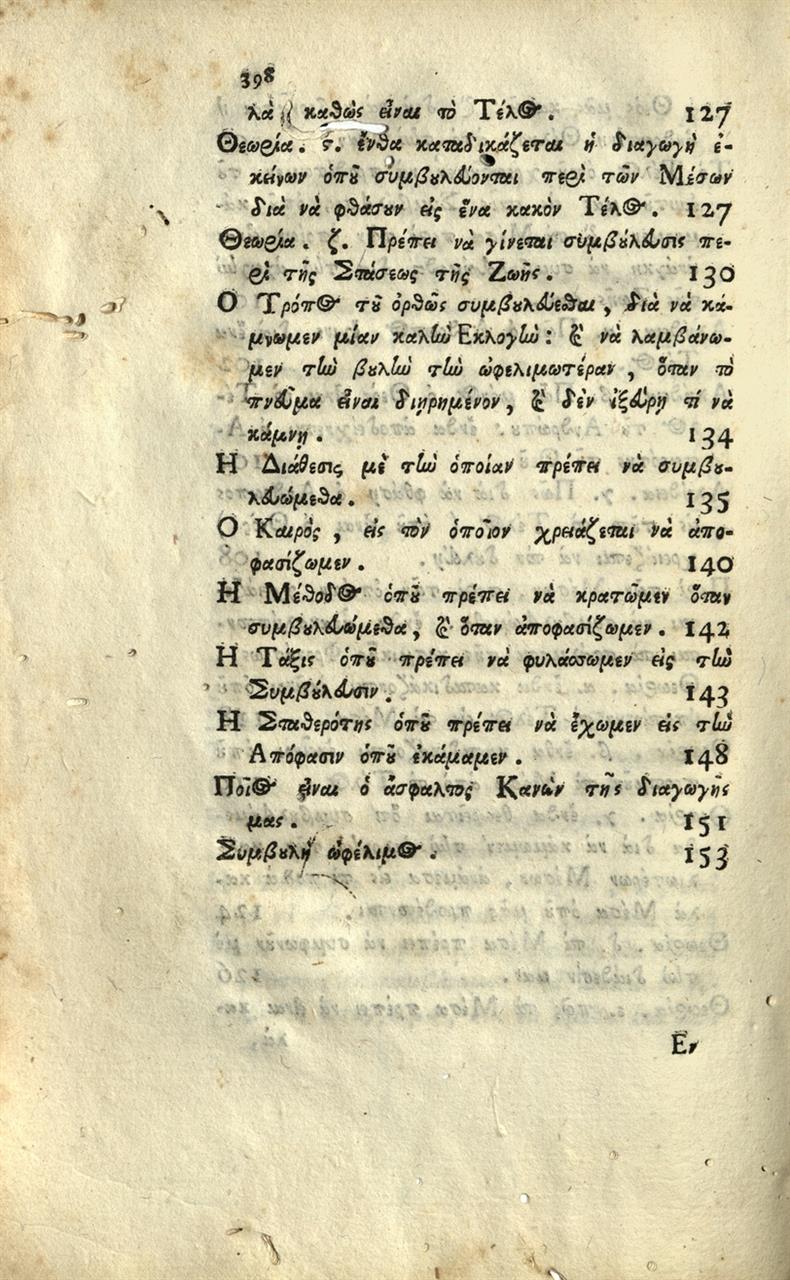 398
λὰ καθὼς εἶναι τὸ Τέλος. 127
Θεωρία. ϛ. ἔνθα καταδικάζεται ἡ διαγωγὴ ἐ-
κείνων ὁποῦ συμβουλεύονται περὶ τῶν Μέσων
διὰ νὰ φθάσουν εἰς ἕνα κακὸν Τέλος. 127
Θεωρία. ζ. Πρέπει νὰ γίνεται συμβούλευσις πε-
ρὶ τῆς Στάσεως τῆς Ζωῆς. 130
Ο Τρόπος τοῦ ὀρθῶς συμβουλεύεσθαι, διὰ νὰ κά-
μνωμεν μίαν καλὴν Εκλογὴν: καὶ νὰ λαμβάνω-
μεν τὴν βουλὴν τὴν ὠφελιμωτέραν, ὅταν τὸ
πνεῦμα εἶναι διῃρημένον, καὶ δὲν ἐξεύρῃ τί νὰ
κάμνῃ. 134
Η Διάθεσις μὲ τὴν ὁποίαν πρέπει νὰ συμβου-
λευώμεθα. 135
Ο Καιρὸς, εἰς τὸν ὁποῖον χρειάζεται νὰ ἀπο-
φασίζωμεν. 140
Η Μέθοδος ὁποῦ πρέπει νὰ κρατῶμεν ὅταν
συμβουλευώμεθα, καὶ ὅταν ἀποφασίζωμεν. 142
Η Τάξις ὁποῦ πρέπει νὰ φυλάσσωμεν εἰς τὴν
Συμβούλευσιν. 143
Η Σταθερότης ὁποῦ πρέπει νὰ ἔχωμεν εἰς τὴν
Απόφασιν ὁποῦ ἐκάμαμεν. 148
Ποῖος εἶναι ὁ ἄσφαλτος Κανὼν τῆς διαγωγῆς
μας. 151
Συμβουλὴ ὠφέλιμος. 153
Εν